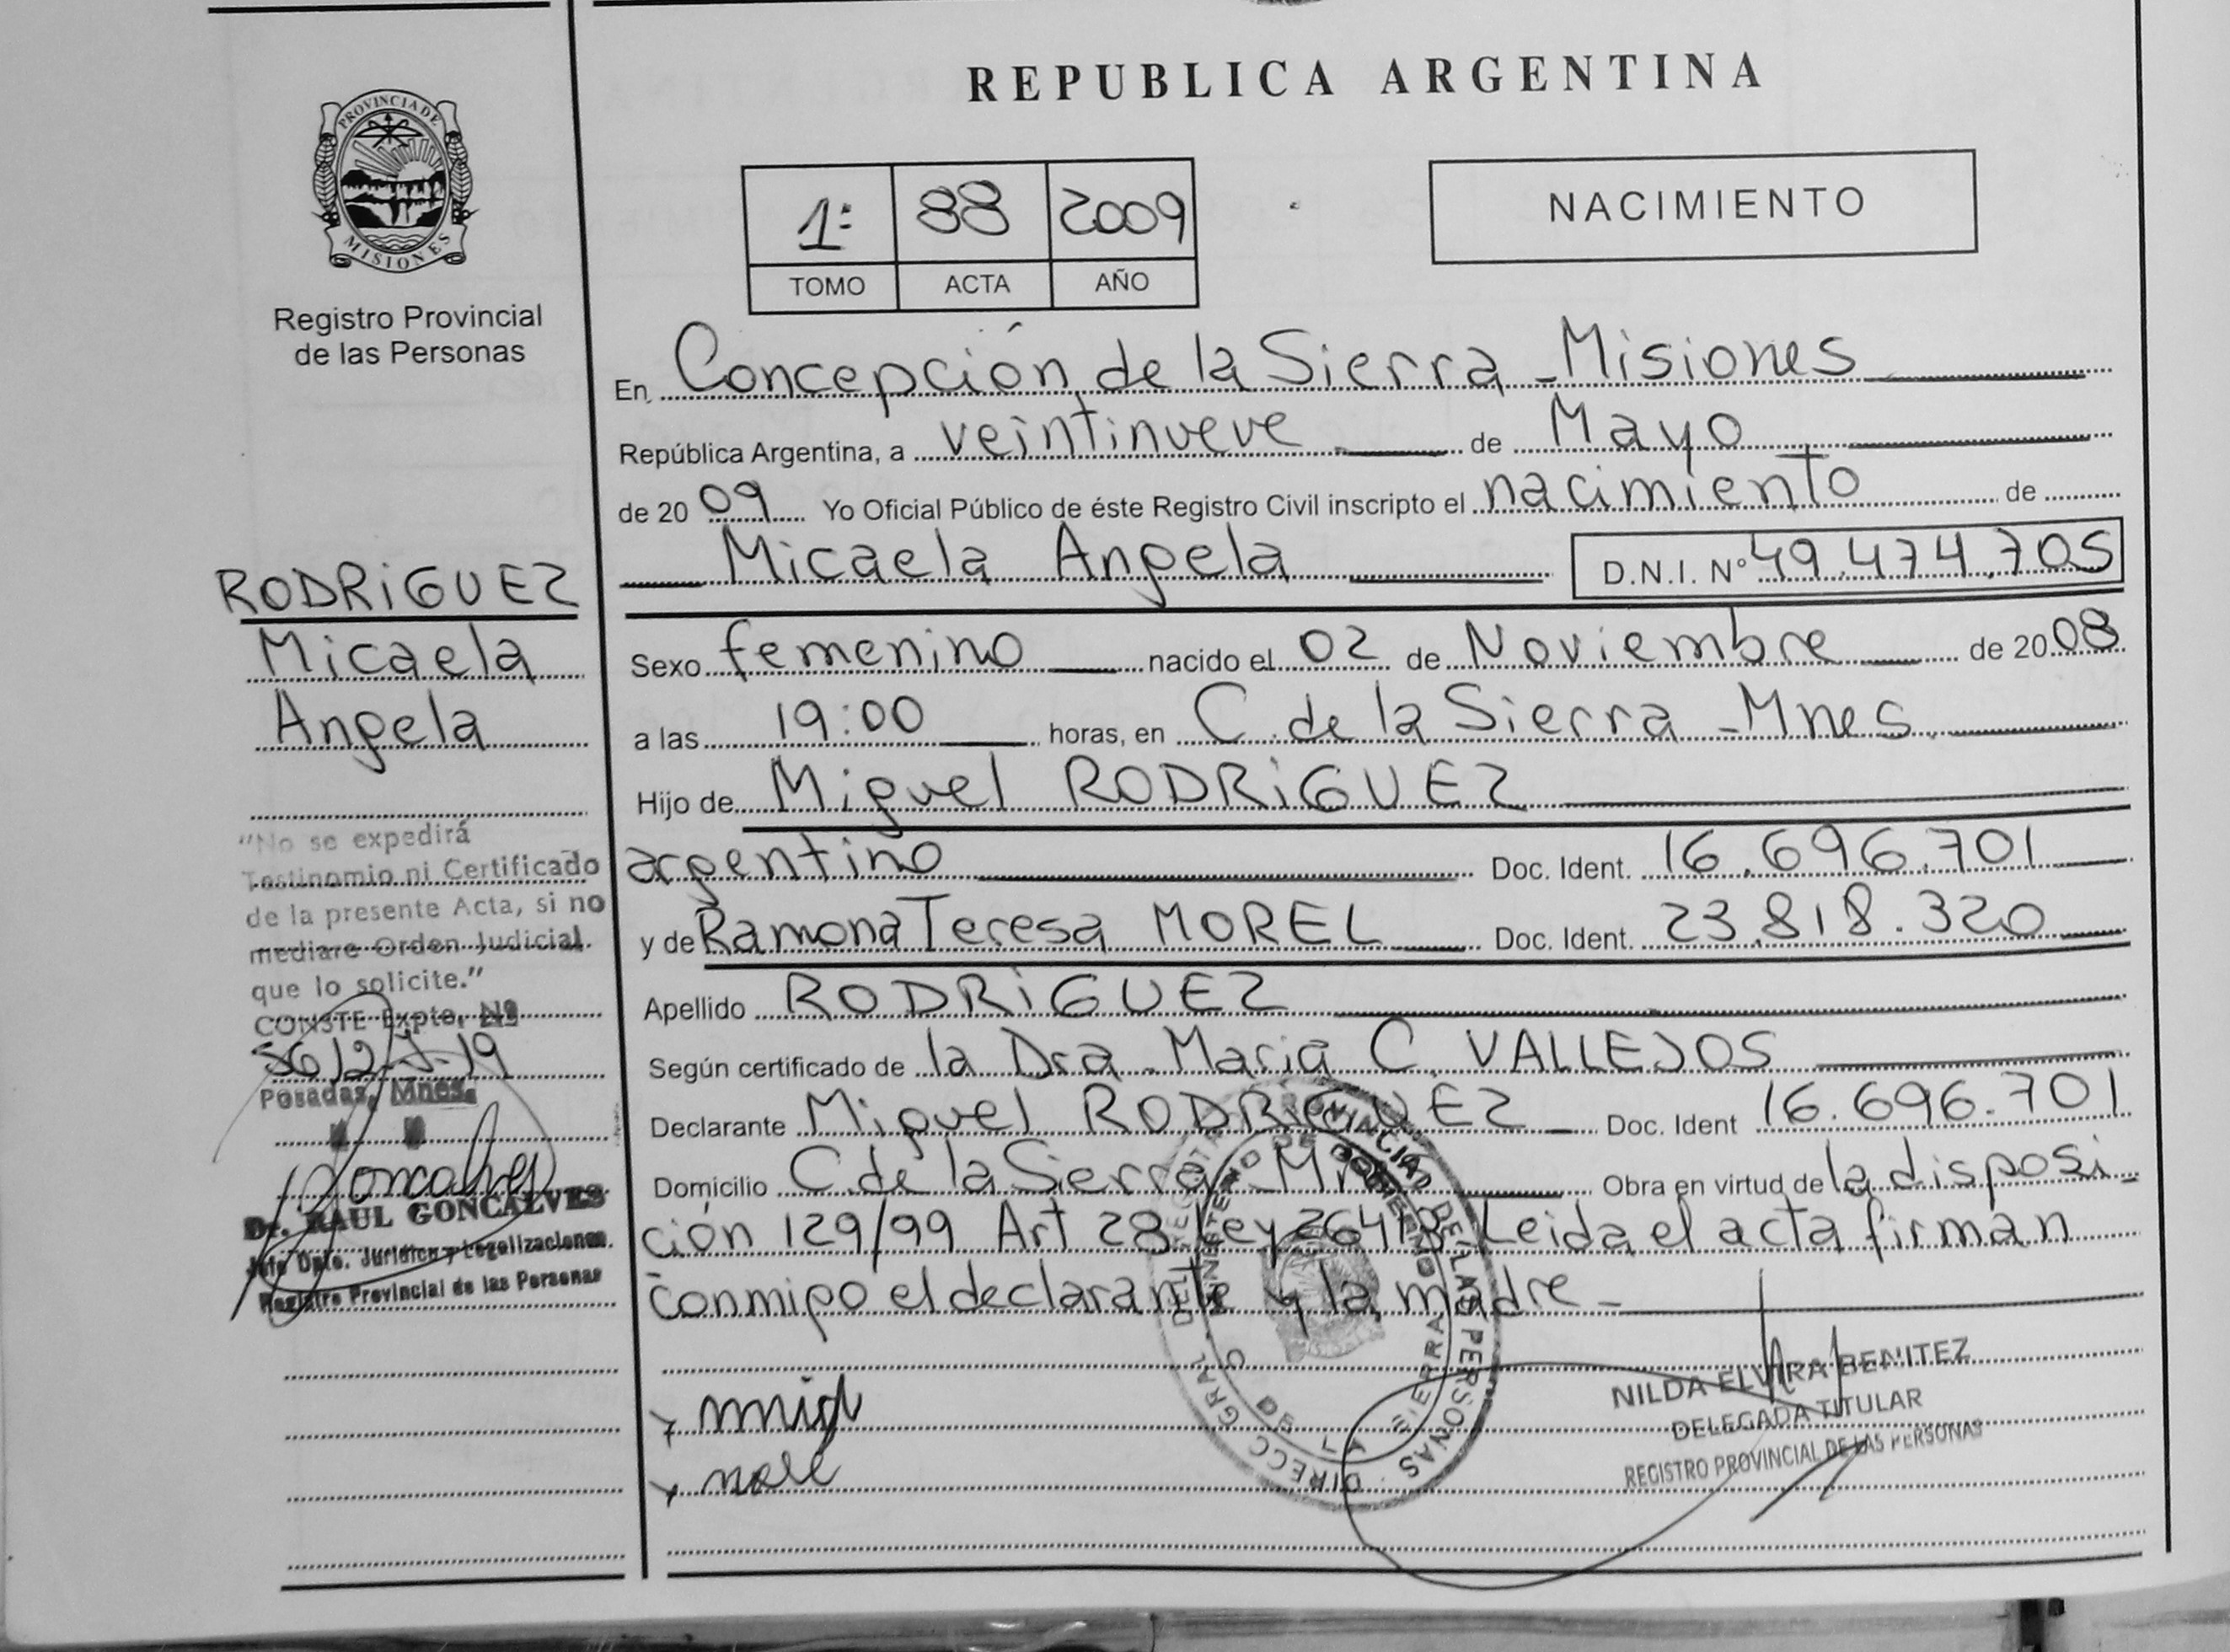 REPUBLICA ARGENTINA
PROVINCIA DE
MISIONES
Registro Provincial
de las Personas
1º 88 2009
TOMO ACTA AÑO
NACIMIENTO
En Concepción de la Sierra - Misiones
República Argentina, a veintinueve de Mayo
de 2009 Yo Oficial Público de éste Registro Civil inscripto el nacimiento de
Micaela Angela D.N.I. Nº 49.474.705
Sexo femenino nacido el 02 de Noviembre de 2008
a las 19:00 horas, en C. de la Sierra - Mnes.
Hijo de Miguel RODRiGUEZ
argentino Doc. Ident. 16.696.701
y de Ramona Teresa MOREL Doc. Ident. 23.818.320
Apellido RODRiGUEZ
Según certificado de la Dra. Maria C. VALLEJOS
Declarante Miguel RODRiGUEZ Doc. Ident 16.696.701
Domicilio C. de la Sierra - Obra en virtud de la disposi
ción 129/99 Art 28 Ley 26413 - Leida el acta firman
conmigo el declarante y la madre -
RODRiGUEZ
Micaela
Angela
"No se expedirá
Testinomio ni Certificado
de la presente Acta, si no
mediare Orden Judicial
que lo solicite."
CONSTE Expto. Nº
Posadas, Mnes.
Dr. RAUL GONCALVES
Jefe Dpto. Jurídico y Legalizaciones
Registro Provincial de las Personas
NILDA ELVIRA BENITEZ
DELEGADA TITULAR
REGISTRO PROVINCIAL DE LAS PERSONAS